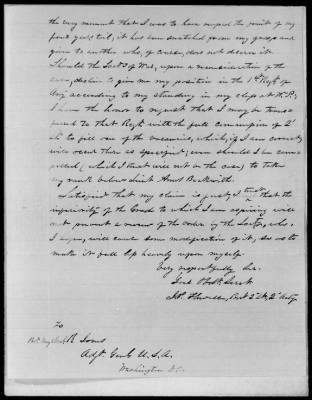 the very moment that I was to have reaped the fruits of my
four years toil, it has been snatched from my grasp and
given to another who, of course, does not deserve it.
Should the Sect. of War, upon a reconsideration of the
case, decline to give me my position in the 1st Regt. of
Arty according to my standing in my class at W.P.;
I have the honor to request that I may be trans-
ferred to that Regt. with the full commission of 2d
Lt. to fill one of the vacancies, which, if I am correctly
will occur there as specified; even should I be com-
pelled, (which I trust will not be the case,) to take
my rank below Lieut Amos Beckwith.
Satisfied that my claim is just, I trust that the
inferiority of the Grade to which I am aspiring will
not prevent a review of the order by the Sectry, who,
I hope, will cause some modification of it, so as to
make it fall less heavily upon myself.
Very respectfully Sir,
Your Obdt. Servt.
Bvt 2d Lt, 2d Arty
To
R Jones
Adjt. Genl. U.S.A.
Washington D.C.